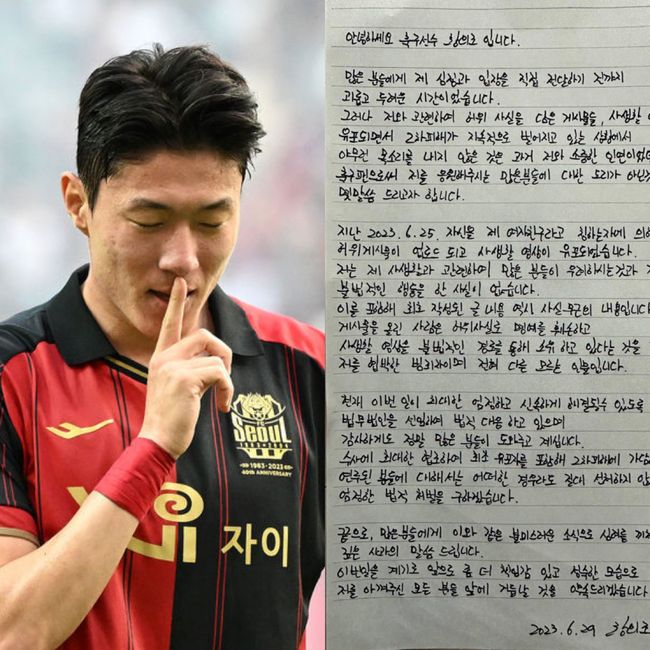 FC
Seoul
1983-2023
40th ANNIVERSARY
자이
안녕하세요 축구선수 황의조 입니다.
많은 분들에게 제 심정과 입장을 직접 전달하기 전까지
괴롭고 두려운 시간이었습니다.
그러나 저와 관련하여 허위 사실을 담은 게시물들, 사생활
유포되면서 2차피해가 지속적으로 벌어지고 있는 상황에서
아무런 목소리를 내지 않은 것은 과거 저와 소중한 인연이었
축구팬으로써 저를 응원해주시는 많은분들에 대한 도리가 아닌
몇말씀 드리고자 합니다.
지난 2023. 6. 25. 자신을 제 여자친구라고 칭하는자에 의
허위게시물이 업로드 되고 사생활 영상이 유포되었습니다.
저는 제 사생활과 관련하여 많은 분들이 우려하시는것과
불법적인 행동을 한 사실이 없습니다.
이를 포함해 최초 작성된 글 내용 역시 사실무근의 내용입니다
게시물을 올린 사람은 허위사실로 명예를 훼손하고
사생활 영상을 불법적인 경로를 통해 소유 하고 있다는 것을
저를 협박한 범죄자이며 전혀 다른 모르는 인물입니다.
현재 이번 일이 최대한 엄정하고 신속하게 해결될수 있도록
법무법인을 선임하여 법적 대응 하고 있으며
감사하게도 정말 많은 분들이 도와주고 계십니다.
수사에 최대한 협조하여 최초 유포자를 포함해 2차피해에 가담
연루된 분들에 대해서는 어떠한 경우라도 절대 선처하지 않
엄정한 법적 처벌을 구하겠습니다.
끝으로, 많은분들에게 이와 같은 불미스러운 소식으로 심려를 끼쳐
깊은 사과의 말씀 드립니다.
이번일을 계기로 앞으로 좀 더 책임감 있고 성숙한 모습으로
저를 아껴주신 모든 분들 앞에 거듭날 것을 약속드리겠습니다
2023. 6. 29 황의조